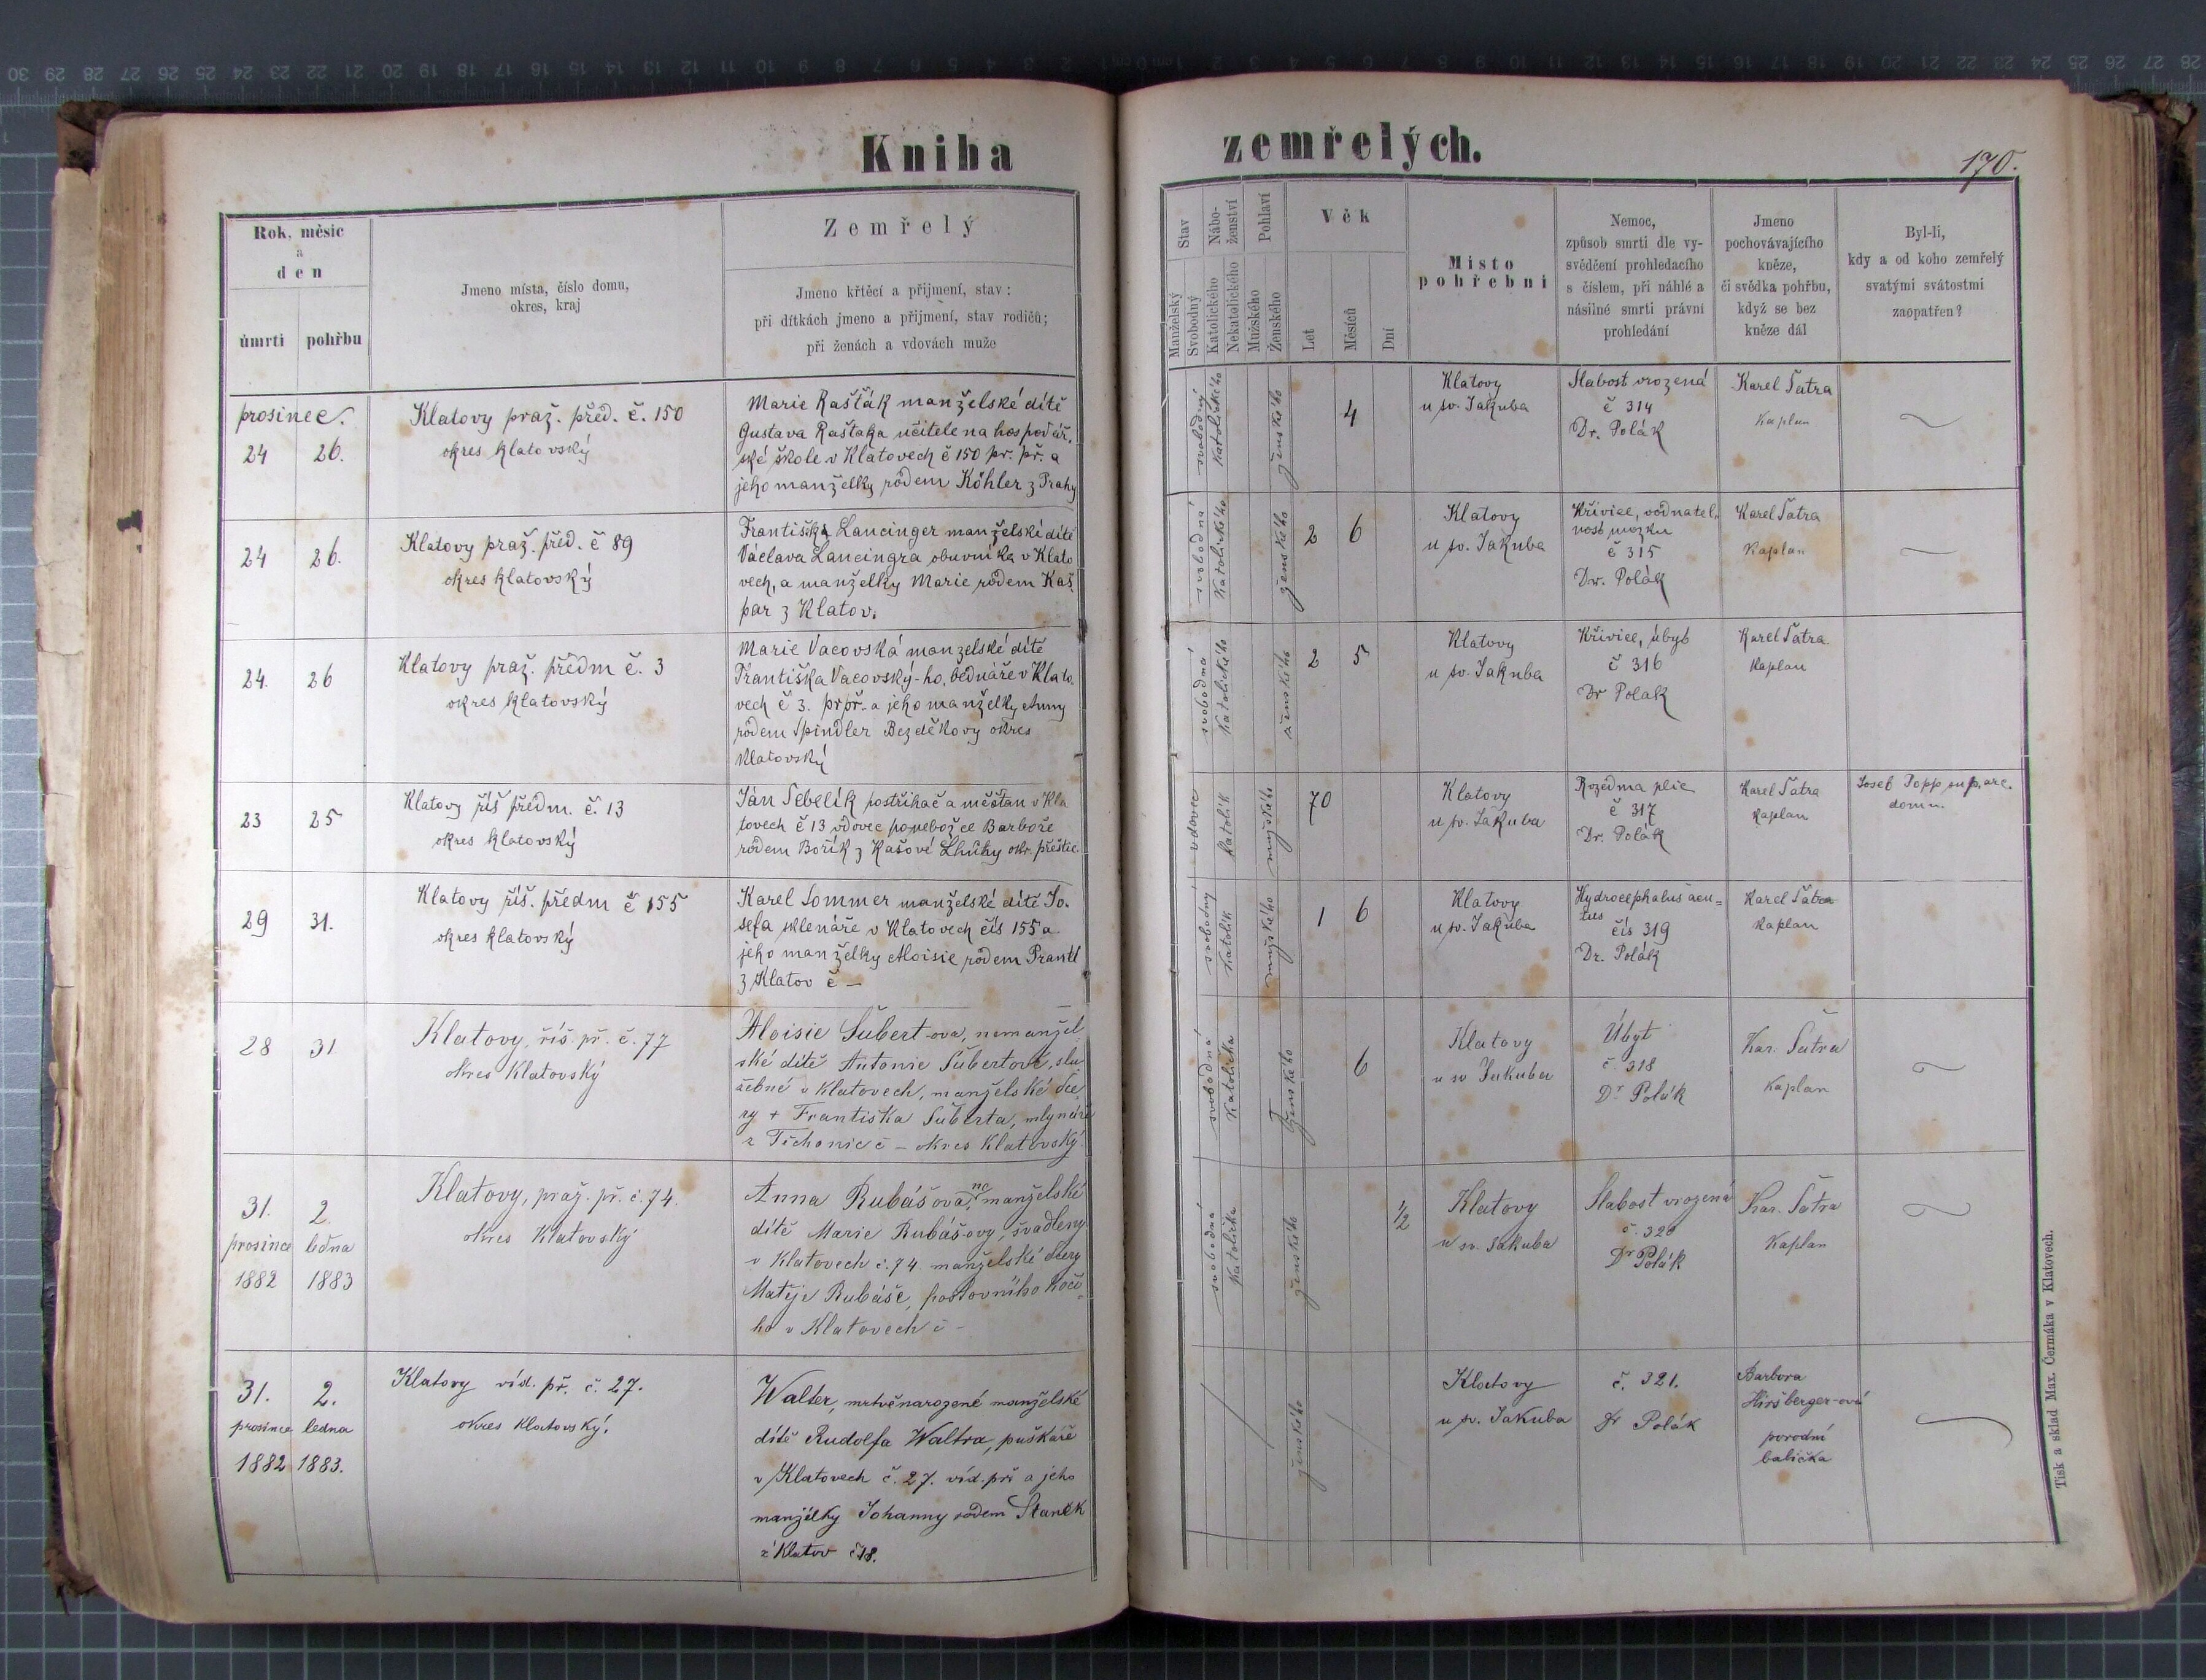 Kniha zemřelých.
170.
Rok, měsíc
a
den
úmrtí pohřbu
Jmeno místa, číslo domu,
okres, kraj
Zemřelý
Jmeno křtěcí a přijmení, stav:
při dítkách jmeno a přijmení, stav rodičů;
při ženách a vdovách muže
Stav
Manželský
Svobodný
Nábo-
ženství
Katolického
Nekatolického
Pohlaví
Mužského
Ženského
Věk
Let
Měsíců
Dní
Místo
pohřební
Nemoc,
způsob smrti dle vy-
svědčení prohledacího
s číslem, při náhlé a
násilné smrti právní
prohledání
Jmeno
pochovávajícího
kněze,
či svědka pohřbu,
když se bez
kněze dál
Byl-li,
kdy a od koho zemřelý
svatými svátostmi
zaopatřen?
prosinec.
24 26.
Klatovy praž. před. č. 150
okres klatovský
Marie Rašťák manželské dítě
Gustava Rašťaka učitele na hospodář.
ské škole v Klatovech č 150 pr. př. a
jeho manželky rodem Köhler z Prahy
svobodný
Katolického
ženského
4
Klatovy
u sv. Jakuba
Slabost vrozená
č 314
Dr. Polák
Karel Šatra
Kaplan
24 26.
Klatovy praž. před. č 89
okres klatovský
Františka Lancinger manželské dítě
Václava Lancingra obuvníka v Klato
vech, a manželky Marie rodem Kaš
par z Klatov.
svobodná
Katolického
ženského
2 6
Klatovy
u sv. Jakuba
Křivice, vodnatel.
nost mozku
č 315
Dr. Polák
Karel Šatra
Kaplan
24. 26
Klatovy praž. předm č. 3
okres klatovský
Marie Vacovská manzelské dítě
Františka Vacovský-ho, bednáře v Klato.
vech č 3. pr př. a jeho manželky Anny
rodem Spindler Bezděkovy okres
Klatovský
svobodná
Katolického
ženského
2 5
Klatovy
u sv. Jakuba
Křivice, úbyt
č 316
Dr Polak
Karel Šatra
Kaplan
23 25
Klatovy říš předm. č. 13
okres klatovský
Ján Šebelík postřihač a měšťan v Kla
tovech č 13 vdovec po nebožce Barboře
rodem Bořík z Kašové Lhůty okr. přeštic
vdovec
Katolík
mužského
70
Klatovy
u sv. Jakuba
Rozedma plic
č 317
Dr. Polák
Karel Šatra
Kaplan
Josef Popp sup. arc.
domu.
29 31.
Klatovy říš. předm č 155
okres klatovský
Karel Sommer manželské dítě Jo.
sefa sklenáře v Klatovech čís 155 a
jeho manželky Aloisie rodem Prantl
z Klatov č —
svobodný
Katolík
mužského
1 6
Klatovy
u sv. Jakuba
Hydrocephalus acu=
tus
čís 319
Dr. Polák
Karel Šatra
Kaplan
28 31
Klatovy, říš. př. č. 77
okres Klatovský
Aloisie Šubert-ova, nemanžel
ské dítě Antonie Šubertové, slu.
žebné v Klatovech, manželské dce
ry + Františka Šuberta, mlynáře
z Těchonic č — okres Klatovský.
svobodná
Katolička
ženského
6
Klatovy
u sv Jakuba
Úbyt
č. 318
Dr Polák
Kar. Šatra
Kaplan
31. 2.
prosince ledna
1882 1883
Klatovy, praž. př. č. 74.
okres Klatovský
Anna Rubášova, nemanželské
dítě Marie Rubáš-ovy, švadleny
v Klatovech č. 74 manželské dcery
Matěje Rubáše, poštovního kočí=
ho v Klatovech č —
svobodná
Katolička
ženského
1/2
Klatovy
u sv. Jakuba
Slabost vrozená
č. 320
Dr Polák
Kar. Šatra
Kaplan
31. 2.
prosince ledna
1882 1883.
Klatovy víd. př. č. 27.
okres klatovský.
Walter, mrtvěnarozené manželské
dítě Rudolfa Waltra, puškaře
v Klatovech č. 27. víd. př. a jeho
manželky Johanny rodem Staněk
z Klatov č 18.
ženského
Klatovy
u sv. Jakuba
č. 321.
Dr Polák
Barbora
Hiršberger-ová
porodní
babička
Tisk a sklad Max. Čermáka v Klatovech.